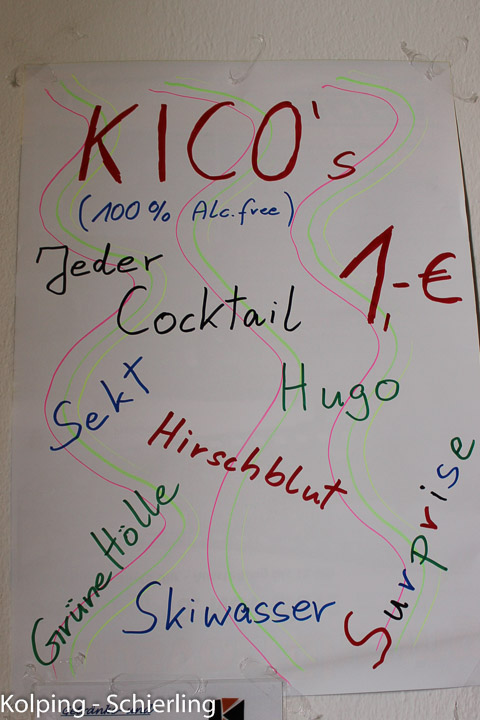 KICO's
(100% Alc.free)
Jeder
Cocktail
1,-€
Sekt
Hugo
Hirschblut
Grüne Hölle
Skiwasser
Surprise
Kolping - Schierling